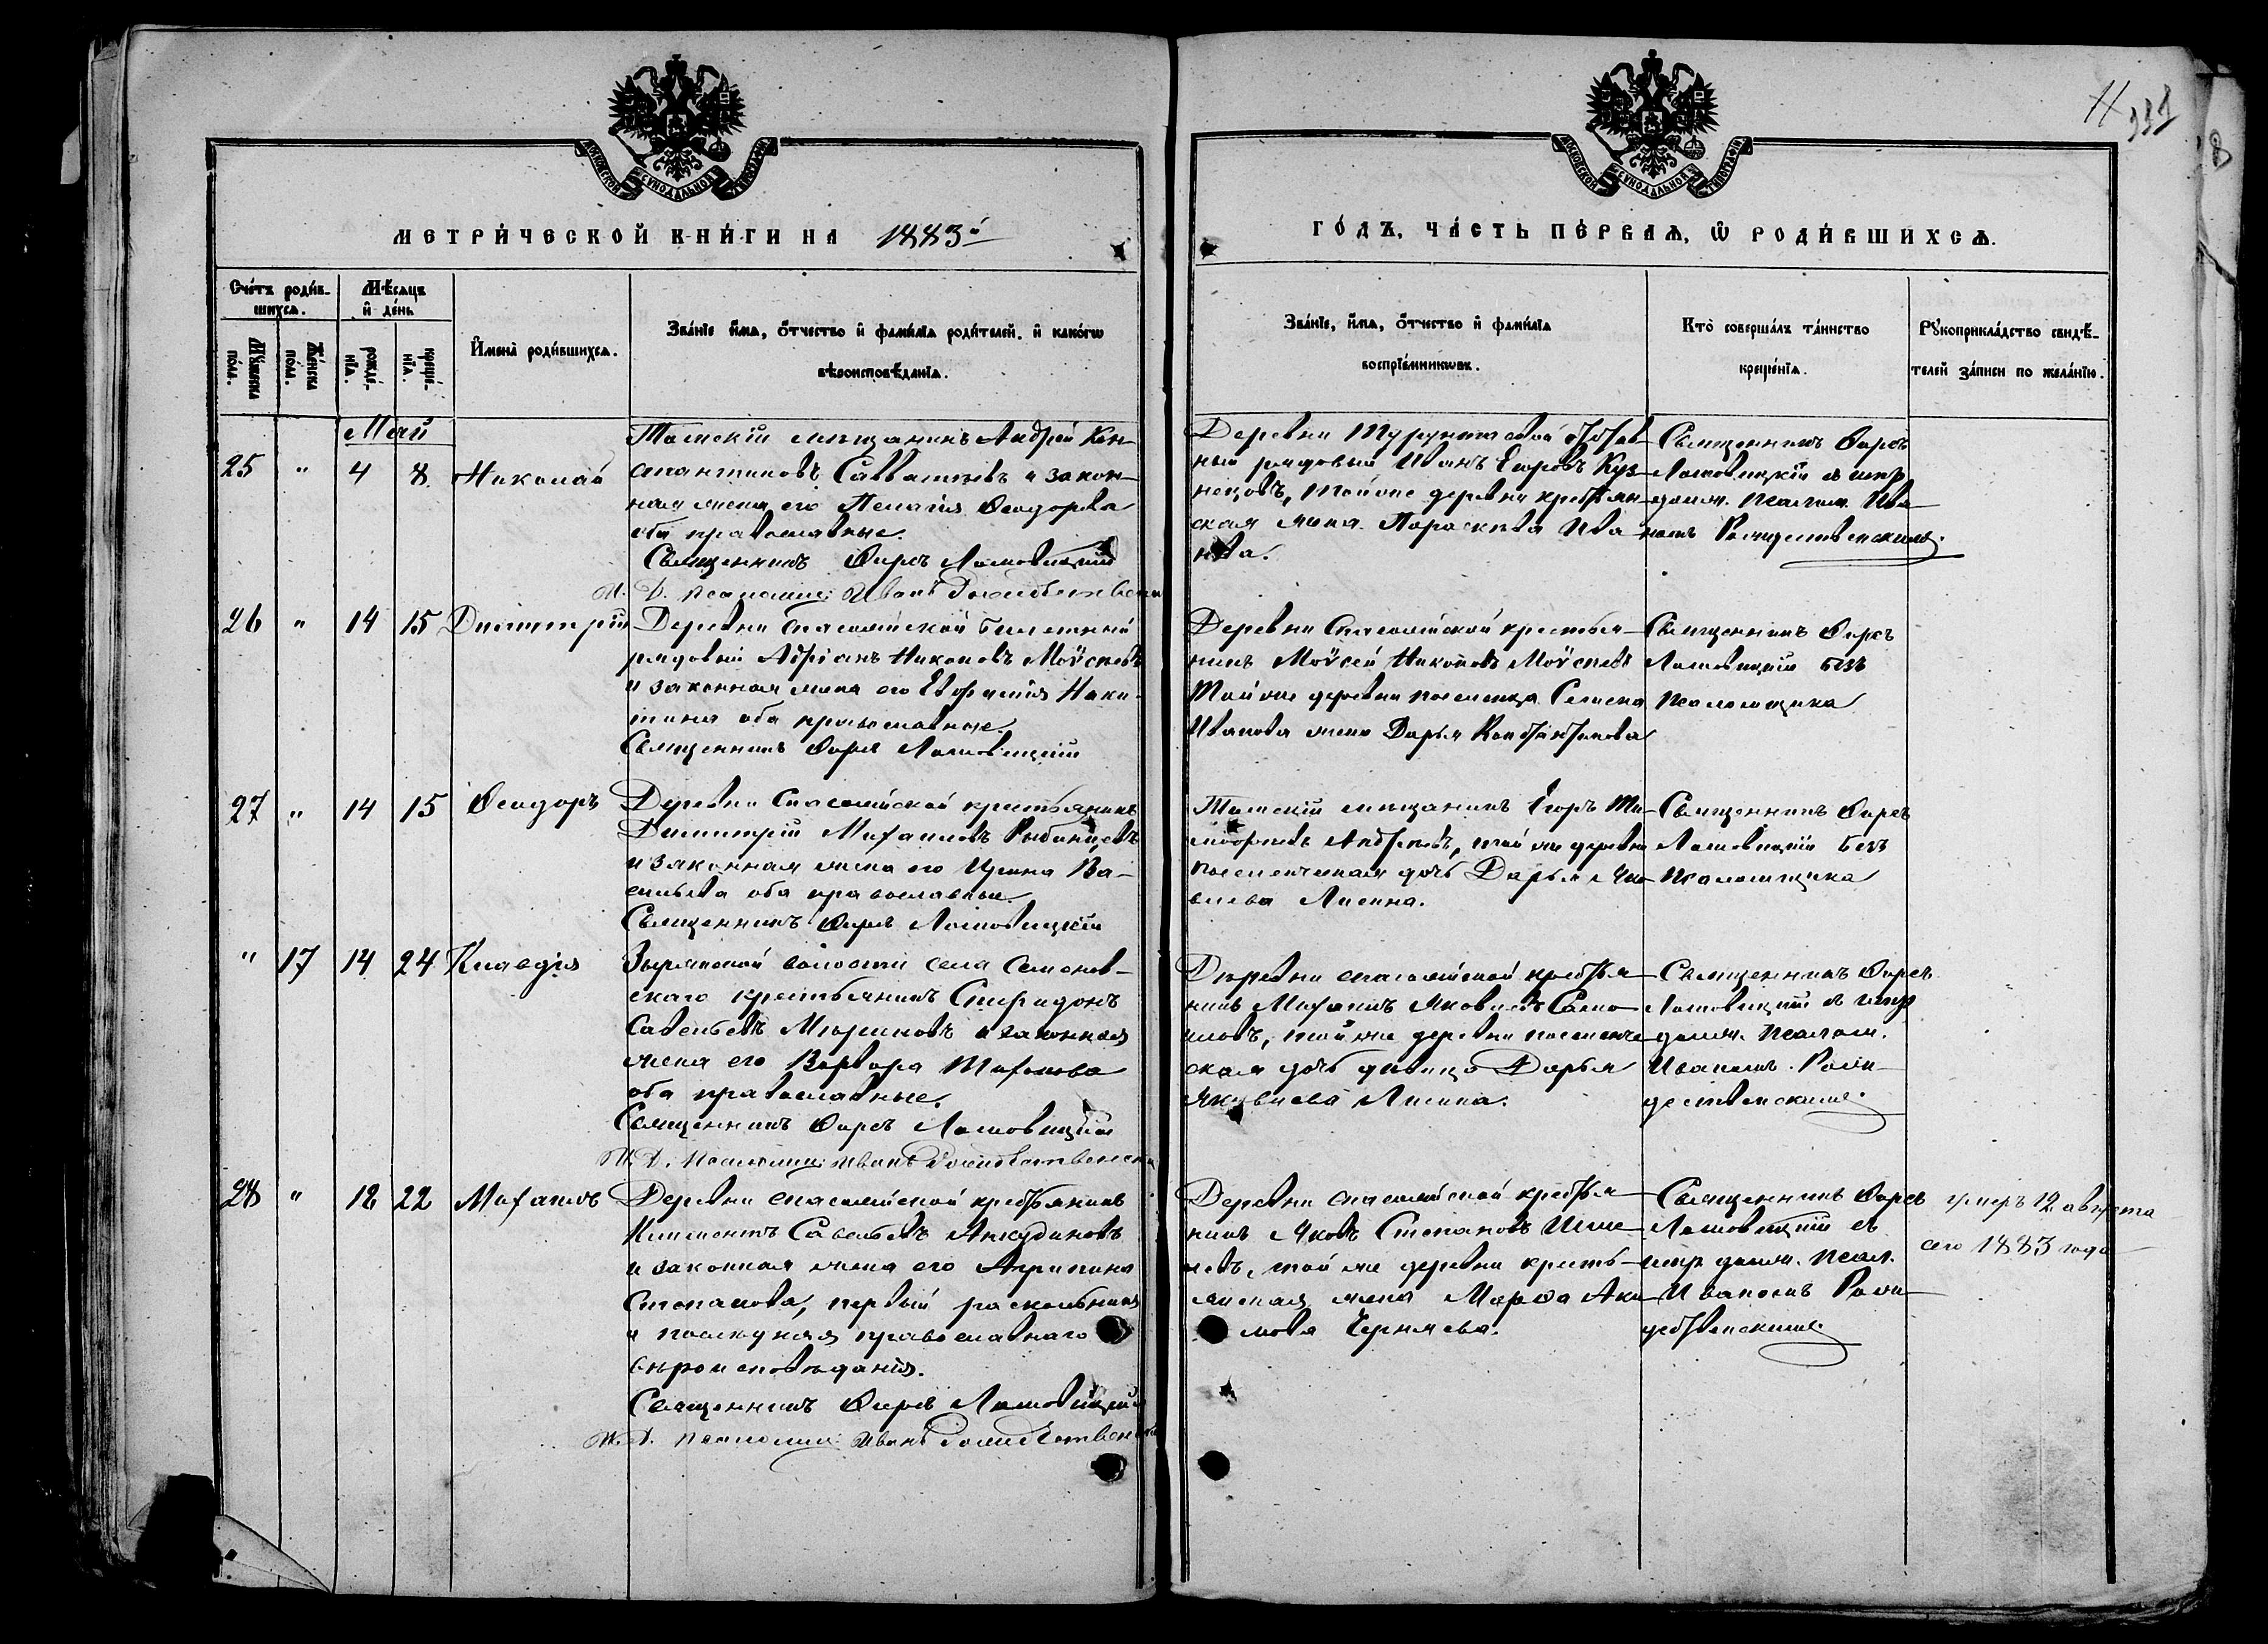 11
331
8
МОСКОВСКОЙ СѴНОДАЛЬНОЙ ТИПОГРАФІИ
МОСКОВСКОЙ СѴНОДАЛЬНОЙ ТИПОГРАФІИ
МЕТРИ́ЧЕСКОЙ КНИ́ГИ НА 1883й
ГО́ДЪ, ЧА́СТЬ ПЕ́РВАѦ, Ѡ҆ РОДИ́ВШИХСѦ.
Сче́тъ роди́в-
шихсѧ.
Мѣ́сѧцъ
и҆ де́нь
Мꙋ́жеска
по́ла.
Же́нска
по́ла.
рожде́-
нїѧ.
креще́-
нїѧ.
И҆мена̀ роди́вшихсѧ.
Зва́нїе и҆́мѧ, ѻ҆́тчество и҆ фами́лїѧ роди́телей. и҆ како́гѡ
вѣроисповѣ́данїѧ.
Зва́нїе, и҆́мѧ, ѻ҆́тчество и҆ фами́лїѧ
воспрїе́мникѡвъ.
Кто̀ соверша́лъ та́инство
креще́нїѧ.
Рꙋкоприкла́дство свидѣ́-
телей за́писи по жела́нїю.
Май
25 " 4 8 Николай
Томскій мѣщанинъ Андрей Кон-
стантиновъ Савватеевъ и закон-
ная жена его Пелагія Ѳеодорова
оба православные.
Священникъ Ѳирсъ Ломовицкій
И. Д. псаломщ: Иванъ Рождественскій
Деревни Турунтаевой отстав-
ный рядовый Иванъ Егоровъ Куз-
нецовъ, тойже деревни крестьян-
ская жена Параскева Ива-
нова.
Священникъ Ѳирсъ
Ломовицкій съ испр
долж. псалом. Ива-
номъ Рождественскимъ.
26 " 14 15 Димитрій
Деревни Спасоямской билетный
рядовый Адріанъ Никоновъ Моѵсеевъ
и законная жена его Евфимія Ники-
тина оба православные.
Священникъ Ѳирсъ Ломовицкій
Деревни Спасоямской крестья-
нинъ Моѵсей Никоновъ Моѵсеевъ
той же деревни поселенца Семена
Иванова жена Дарья Константинова
Священникъ Ѳирсъ
Ломовицкій безъ
псаломщика
27 " 14 15 Ѳеодоръ
Деревни Спасоямской крестьянинъ
Димитрій Михаиловъ Рыбинцевъ
и законная жена его Ирина Ва-
сильева оба православные.
Священникъ Ѳирсъ Ломовицкій
Томскій мѣщанинъ Егоръ Ти-
моѳеевъ Андреевъ, той же деревни
поселенческая дочь Дарья Яко-
влева Лисина.
Священникъ Ѳирсъ
Ломовицкій безъ
псаломщика
" 17 14 24 Клавдія
Зырянской волости села Семенов-
скаго крестьянинъ Спиридонъ
Савельевъ Мюриновъ и законная
жена его Варвара Тихонова
оба православные.
Священникъ Ѳирсъ Ломовицкій
И. Д. псаломщ: Иванъ Рождественскій
Деревни Спасоямской крестья-
нинъ Михаилъ Яковлевъ Само-
иловъ, той же деревни поселенче-
ская дочь дѣвица Дарья
Яковлева Лисина.
Священникъ Ѳирсъ
Ломовицкій съ испр
долж. псалом.
Иваномъ Рож-
дественскимъ.
28 " 18 22 Михаилъ
Деревни Спасоямской крестьянинъ
Климентъ Савельевъ Анкудиновъ
и законная жена его Агрипина
Степанова, первый раскольникъ
и послѣдняя православнаго
вѣроисповѣданія.
Священникъ Ѳирсъ Ломовицкій
И. Д. псаломщ: Иванъ Рождественскій
Деревни Спасоямской крестья-
нинъ Яковъ Степановъ
той же деревни кресть-
янская жена Марѳа Аки-
мова Черняева.
Священникъ Ѳирсъ
Ломовицкій съ
испр. долж. псал.
Иваномъ Рож-
дественскимъ.
умеръ 12 августа
сего 1883 года